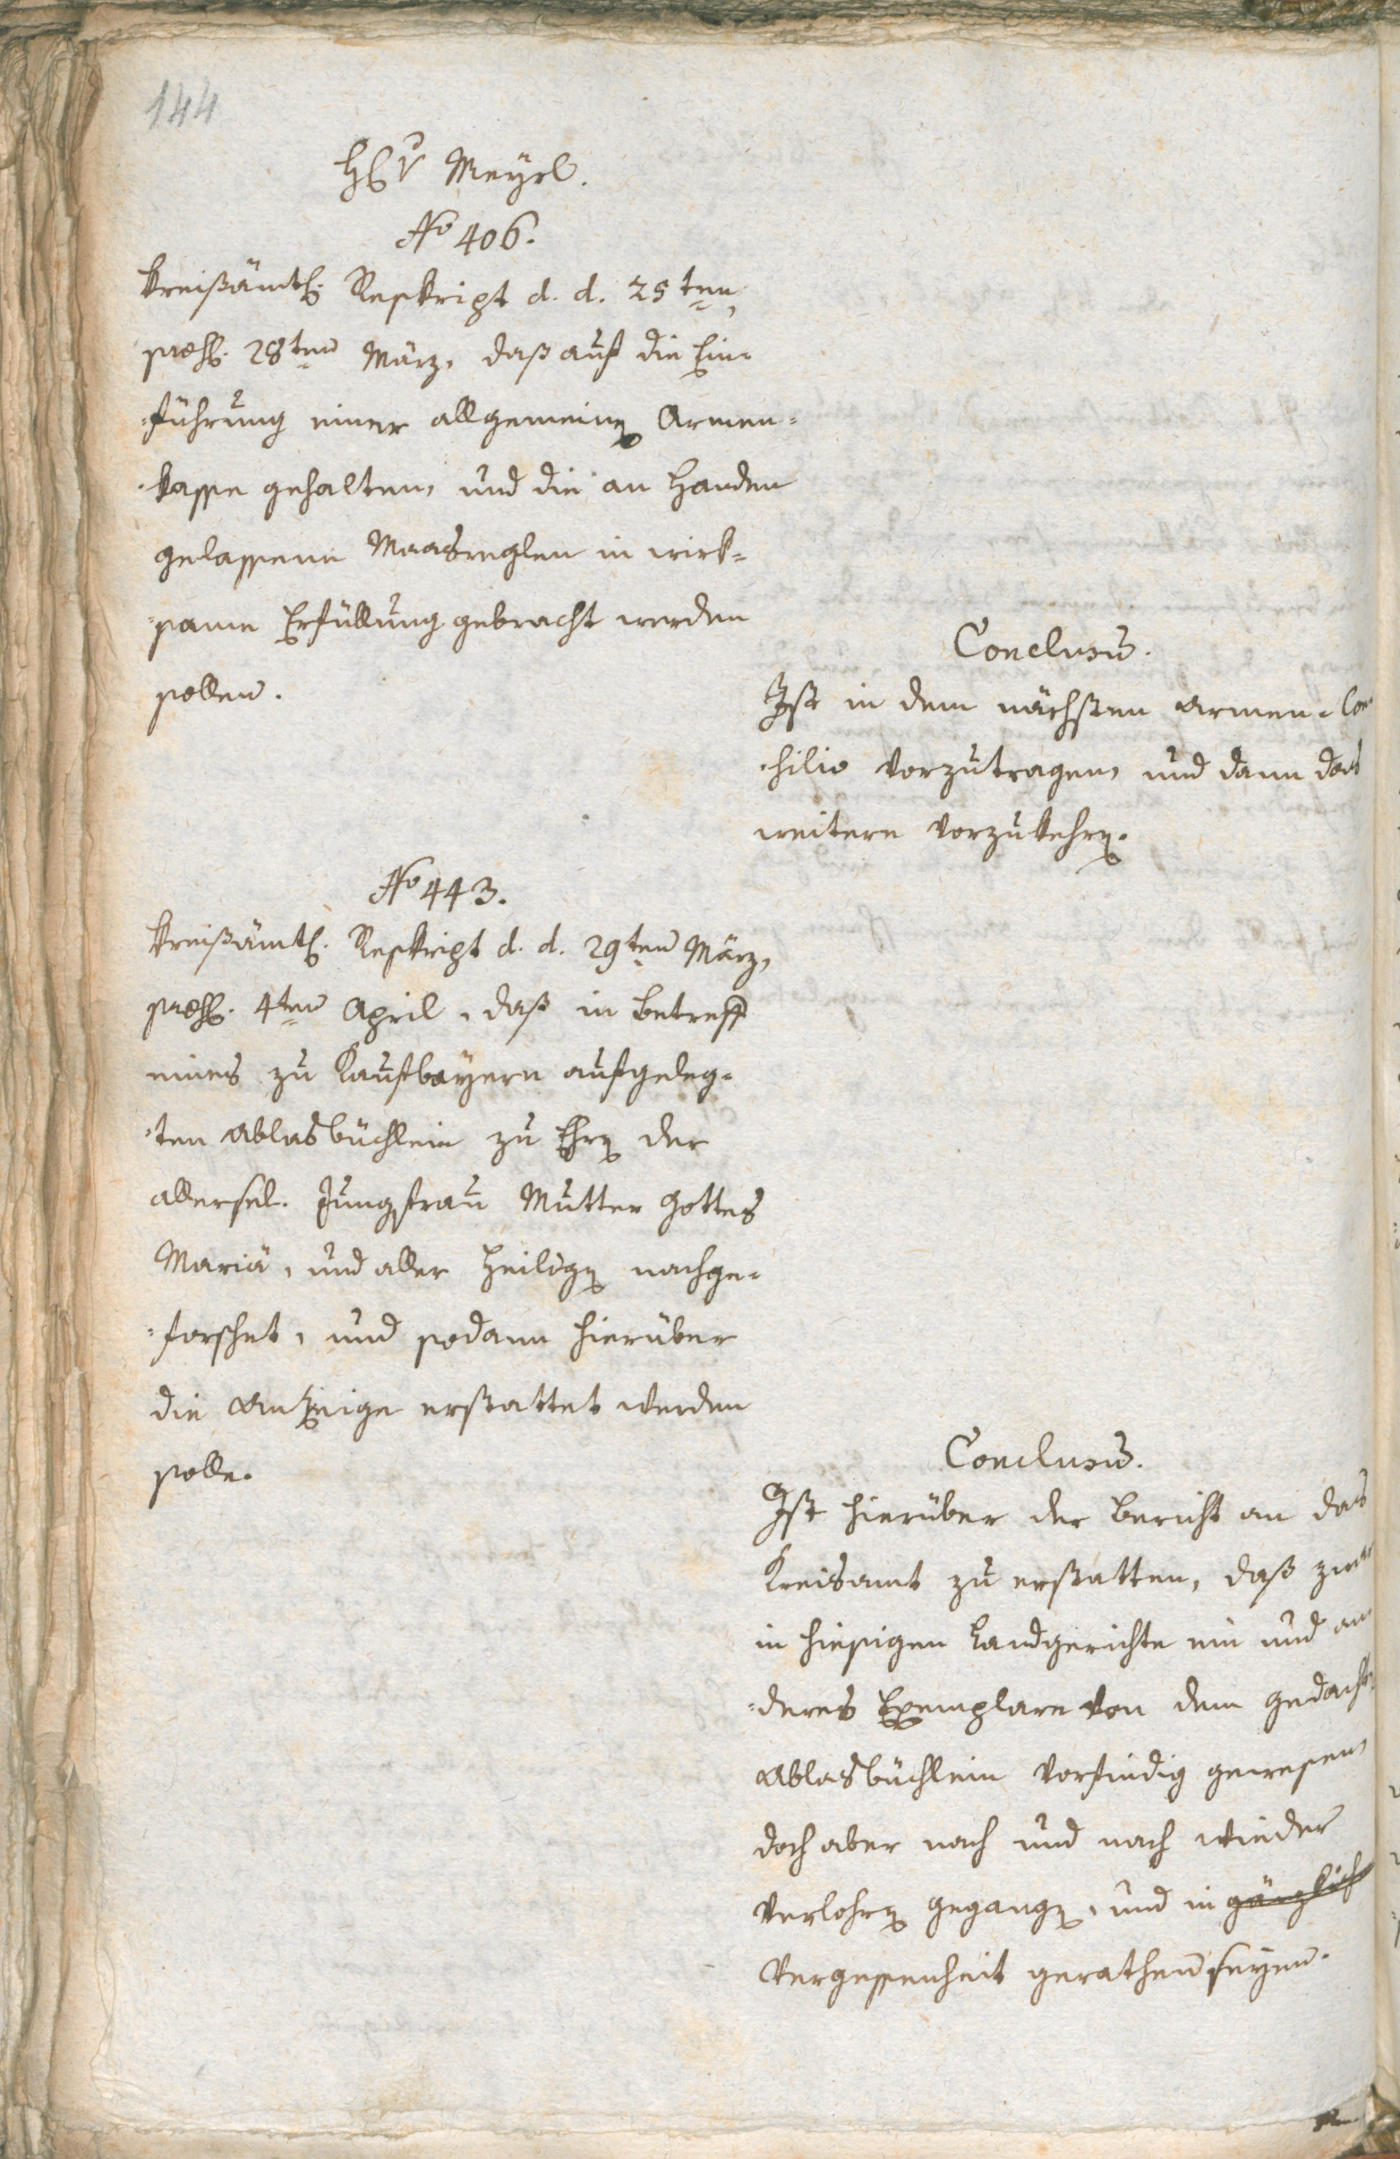 144
H: Meyrl.
No 406.
Kreißämtl. Reskript d. d. 25ten
praes. 28ten März, daß auf die Ein-
-führung einer allgemeinen Armen-
-kasse gehalten, und die an Handen
gelassene Maasreglen in wirk-
-same Erfüllung gebracht werden
sollen.
Conclusum.
Ist in dem nächsten Armen-Con-
-silio vorzutragen, und dann das
weitere vorzukehren.
No 443.
Kreißämtl. Reskript d. d. 29ten März,
praes. 4ten April, daß in Betreff
eines zu Kaufbeyern aufgeleg-
-ten Ablasbüchlein zu Ehren der
allersel. Jungfrau Mutter Gottes
Mariä, und aller Heiligen nachge-
-forschet, und sodann hierüber
die Anzeige erstattet werden
solle.
Conclusum.
Ist hierüber der Bericht an das
Kreisamt zu erstatten, daß zwar
in hiesigen Landgerichte ein und an-
-deres Exemplare von dem gedacht
Ablasbüchlein vorfindig gewesen,
doch aber nach und nach wieder
verlohren gegangen, und in gänzlich
Vergessenheit gerathen seyen.